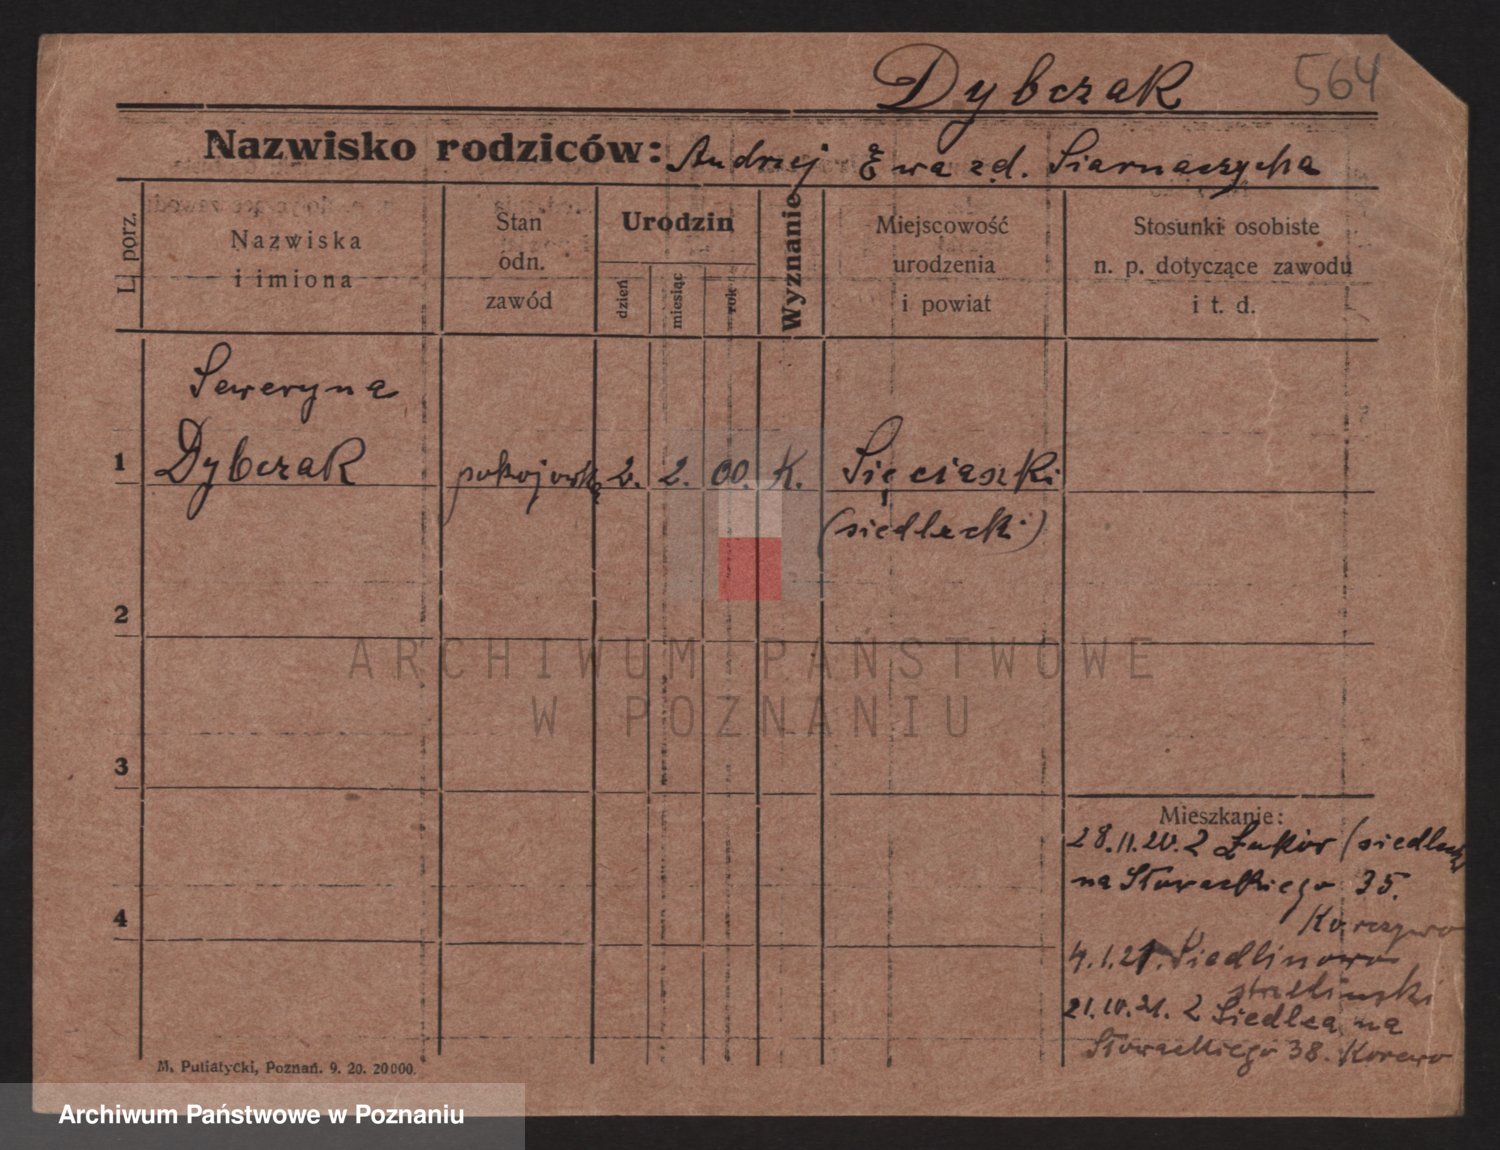 Dybczak 564
Nazwisko rodziców: Andrzej Ewa zd. Siarnaczycha
L. porz.
Nazwiska
i imiona
Stan
odn.
zawód
Urodzin
dzień
miesiąc
rok
Wyznanie
Miejscowość
urodzenia
i powiat
Stosunki osobiste
n. p. dotyczące zawodu
i t. d.
Seweryna
1 Dybczak pokojowka 2. 2. 00. K. Sięciaszki
(siedlecki)
2
ARCHIWUM PAŃSTWOWE
W POZNANIU
3
Mieszkanie:
28.11.20. z Łuków (siedlecki
na Słowackiego 35.
4
4.1.21. Siedlinowo
strzeliński
21.IV.21. z Siedlca na
Słowackiego 38.
M. Putiatycki, Poznań. 9. 20. 20000.
Archiwum Państwowe w Poznaniu